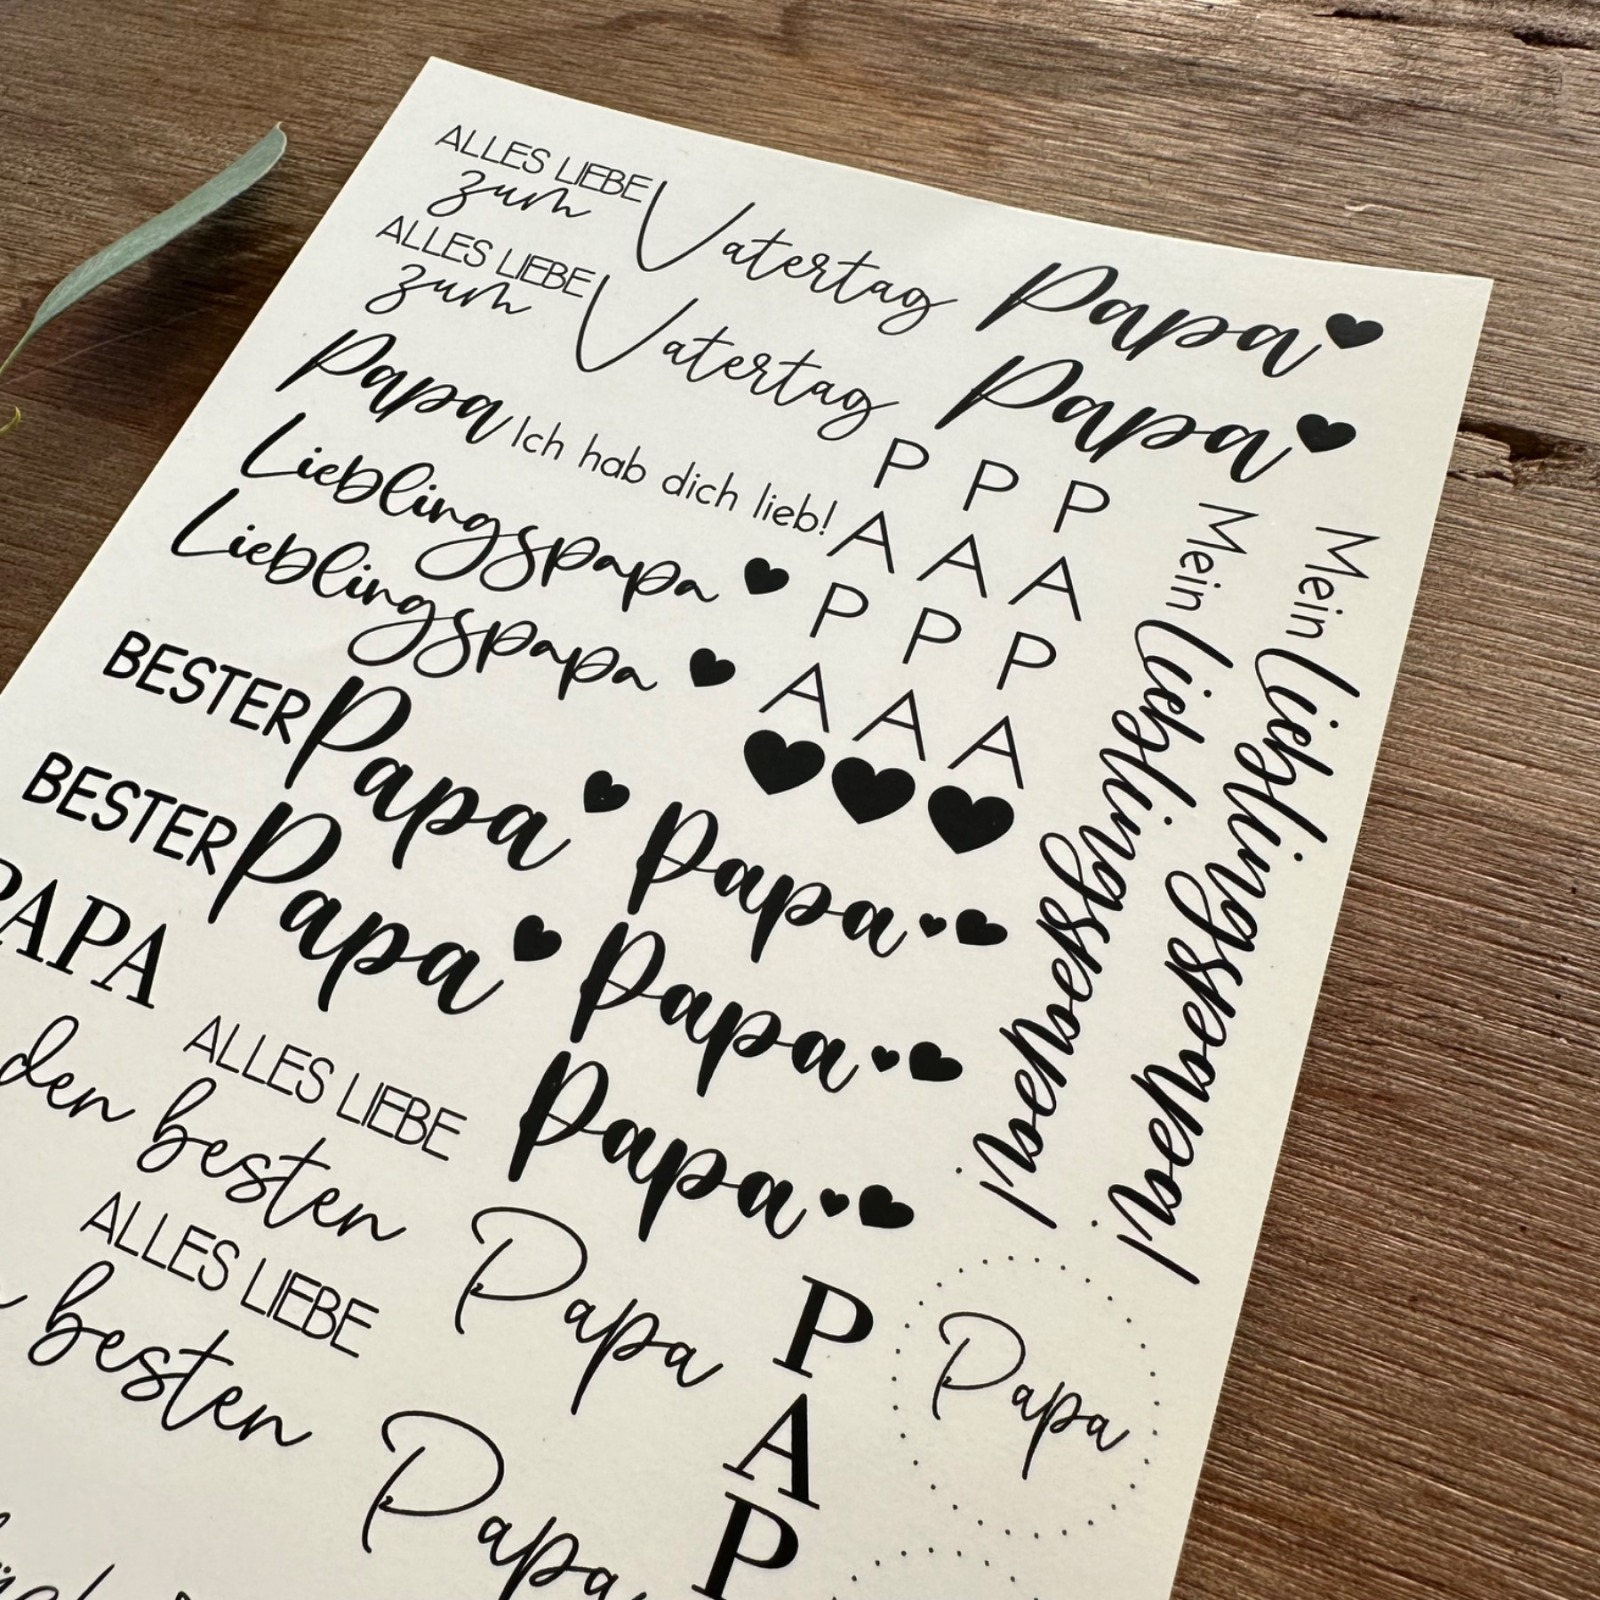 ALLES LIEBE
zum Vatertag Papa
ALLES LIEBE
zum Vatertag Papa
Papa Ich hab dich lieb!
Lieblingspapa
Lieblingspapa
P P P
A A A
P P P
A A A
Mein Lieblingspapa!
Mein Lieblingspapa!
BESTER Papa
BESTER Papa
Papa
Papa
Papa
PAPA
ALLES LIEBE
den besten Papa
ALLES LIEBE
besten Papa
P
A
P
Papa